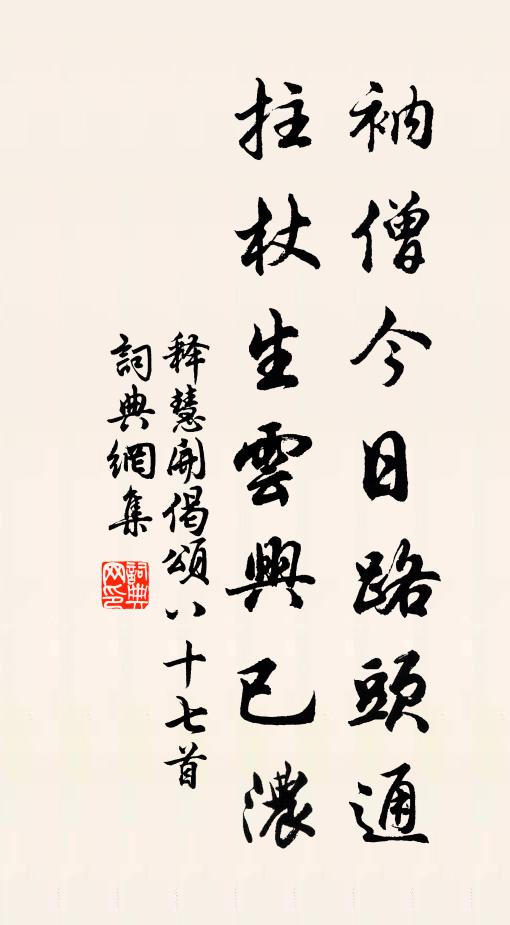 衲僧今日路頭通
拄杖生雲興已濃
释慧開偈頌八十七首
詞典網集
詞典
网印